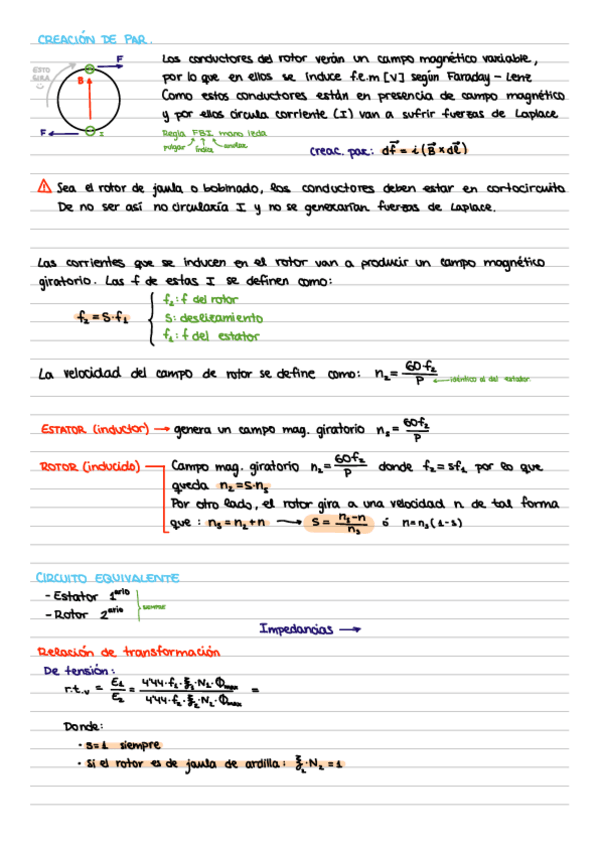 CREACIÓN DE PAR.
ESTO GIRA
F
B
I
F
Los conductores del rotor verán un campo magnético variable,
por lo que en ellos se induce f.e.m [V] según Faraday - Lenz
Como estos conductores están en presencia de campo magnético
y por ellos circula corriente (I) van a sufrir fuerzas de Laplace
Regla FBI mano izda
pulgar índice
creac. par: df = i (B × dl)
⚠ Sea el rotor de jaula o bobinado, los conductores deben estar en cortocircuito
De no ser así no circularía I y no se generarían fuerzas de Laplace.
Las corrientes que se inducen en el rotor van a producir un campo magnético
giratorio. Las f de estas I se definen como:
f₂ = S·f₁
f₂: f del rotor
S: deslizamiento
f₁: f del estator
La velocidad del campo de rotor se define como: n₂ = 60·f₂ / P ← idéntico al del estator
ESTATOR (inductor) → genera un campo mag. giratorio nₛ = 60f₂ / P
ROTOR (inducido) Campo mag. giratorio n₂ = 60f₂ / P donde f₂ = sf₁ por lo que
queda n₂ = S·nₛ
Por otro lado, el rotor gira a una velocidad n de tal forma
que: nₛ = n₂ + n → S = nₛ-n / nₛ ó n = nₛ(1-s)
CIRCUITO EQUIVALENTE
- Estator 1ario
- Rotor 2ario
SIEMPRE
Impedancias →
Relación de transformación
De tensión:
r.t.v = E₁ / E₂ = 4'44·f₁·ξ₁·N₁·Φmax / 4'44·f₂·ξ₂·N₂·Φmax =
Donde:
· s=1 siempre
· Si el rotor es de jaula de ardilla: ξ₂·N₂ = 1